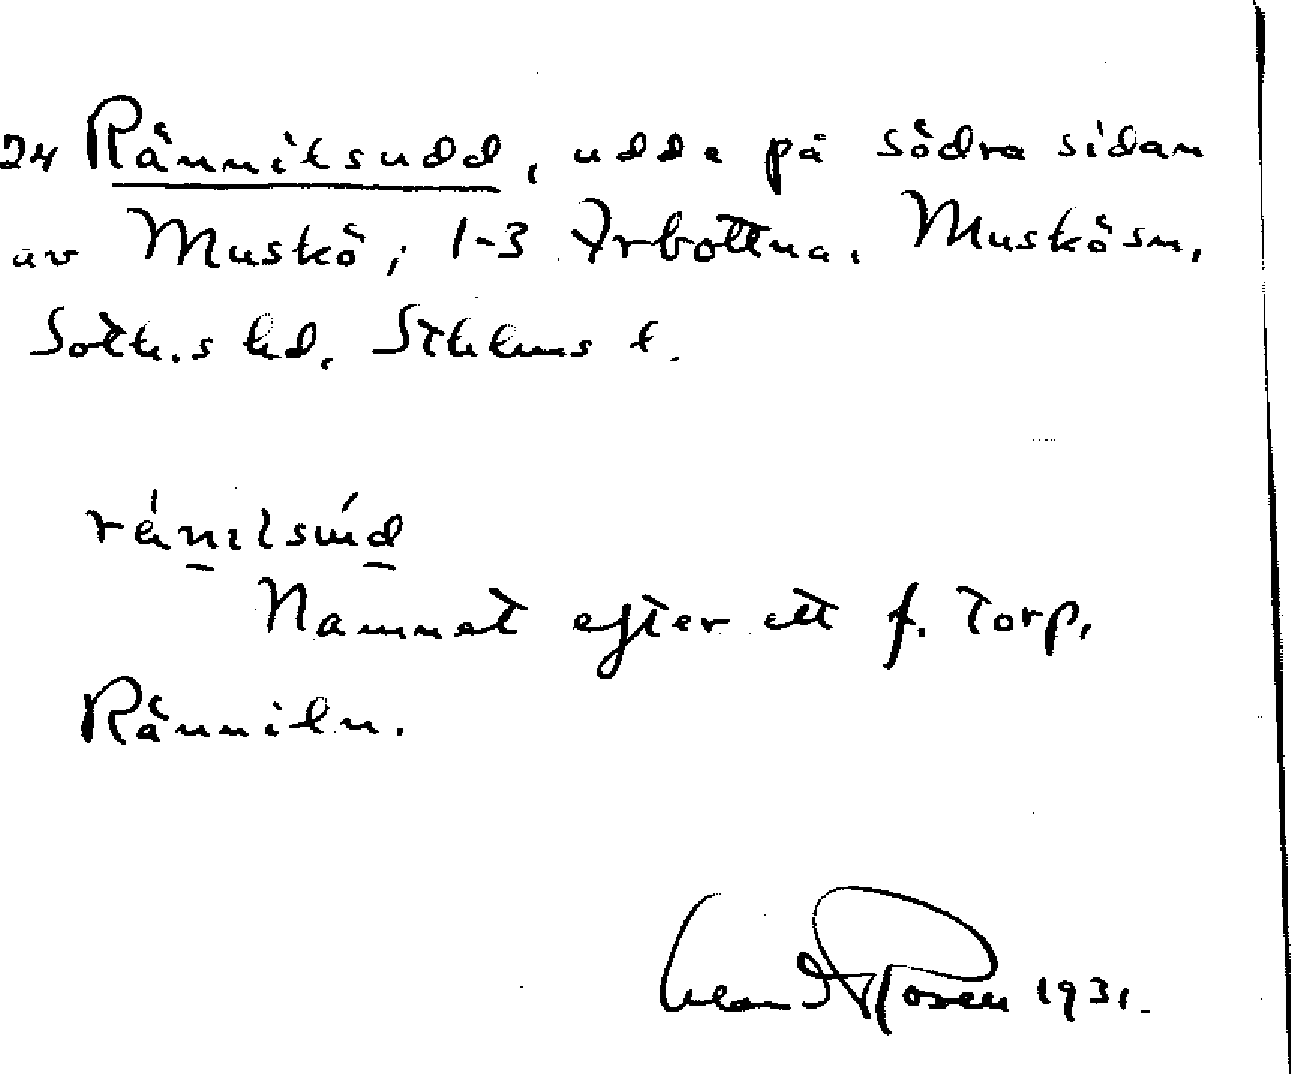 24 Rånnilsudd, udde på södra sidan
av Muskö, 1-3 Yrbottna. Muskö sn,
Soth.s hd. Sthlms l.
rånilsúd
Namnet efter ett f. torp,
Rånniln.
Rosen 1931.